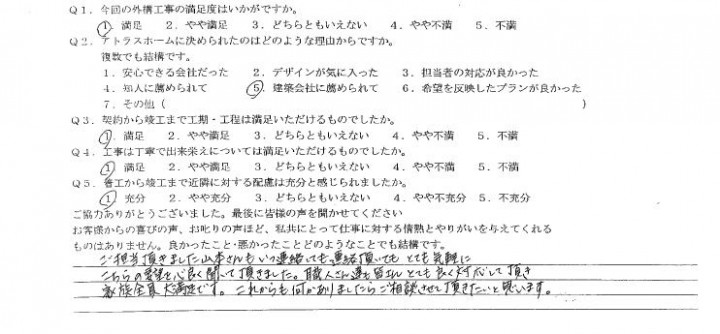 Q1．今回の外構工事の満足度はいかがですか。
1．満足　2．やや満足　3．どちらともいえない　4．やや不満　5．不満
Q2．アトラスホームに決められたのはどのような理由からですか。
複数でも結構です。
1．安心できる会社だった　2．デザインが気に入った　3．担当者の対応が良かった
4．知人に薦められて　5．建築会社に薦められて　6．希望を反映したプランが良かった
7．その他（　　　）
Q3．契約から竣工まで工期・工程は満足いただけるものでしたか。
1．満足　2．やや満足　3．どちらともいえない　4．やや不満　5．不満
Q4．工事は丁寧で出来栄えについては満足いただけるものでしたか。
1．満足　2．やや満足　3．どちらともいえない　4．やや不満　5．不満
Q5．着工から竣工まで近隣に対する配慮は充分と感じられましたか。
1．充分　2．やや充分　3．どちらともいえない　4．やや不充分　5．不充分
ご協力ありがとうございました。最後に皆様の声を聞かせてください
お客様からの喜びの声、お叱りの声ほど、私共にとって仕事に対する情熱とやりがいを与えてくれる
ものはありません。良かったこと・悪かったことどのようなことでも結構です。
ご担当頂きました山本さんもいつ連絡しても連絡頂いてもとても気軽に
こちらの要望を心良く聞いて頂きました。職人さん達も皆さんとても良く対応して頂き
家族全員大満足です。これからも何かありましたらご相談させて頂きたいと思います。